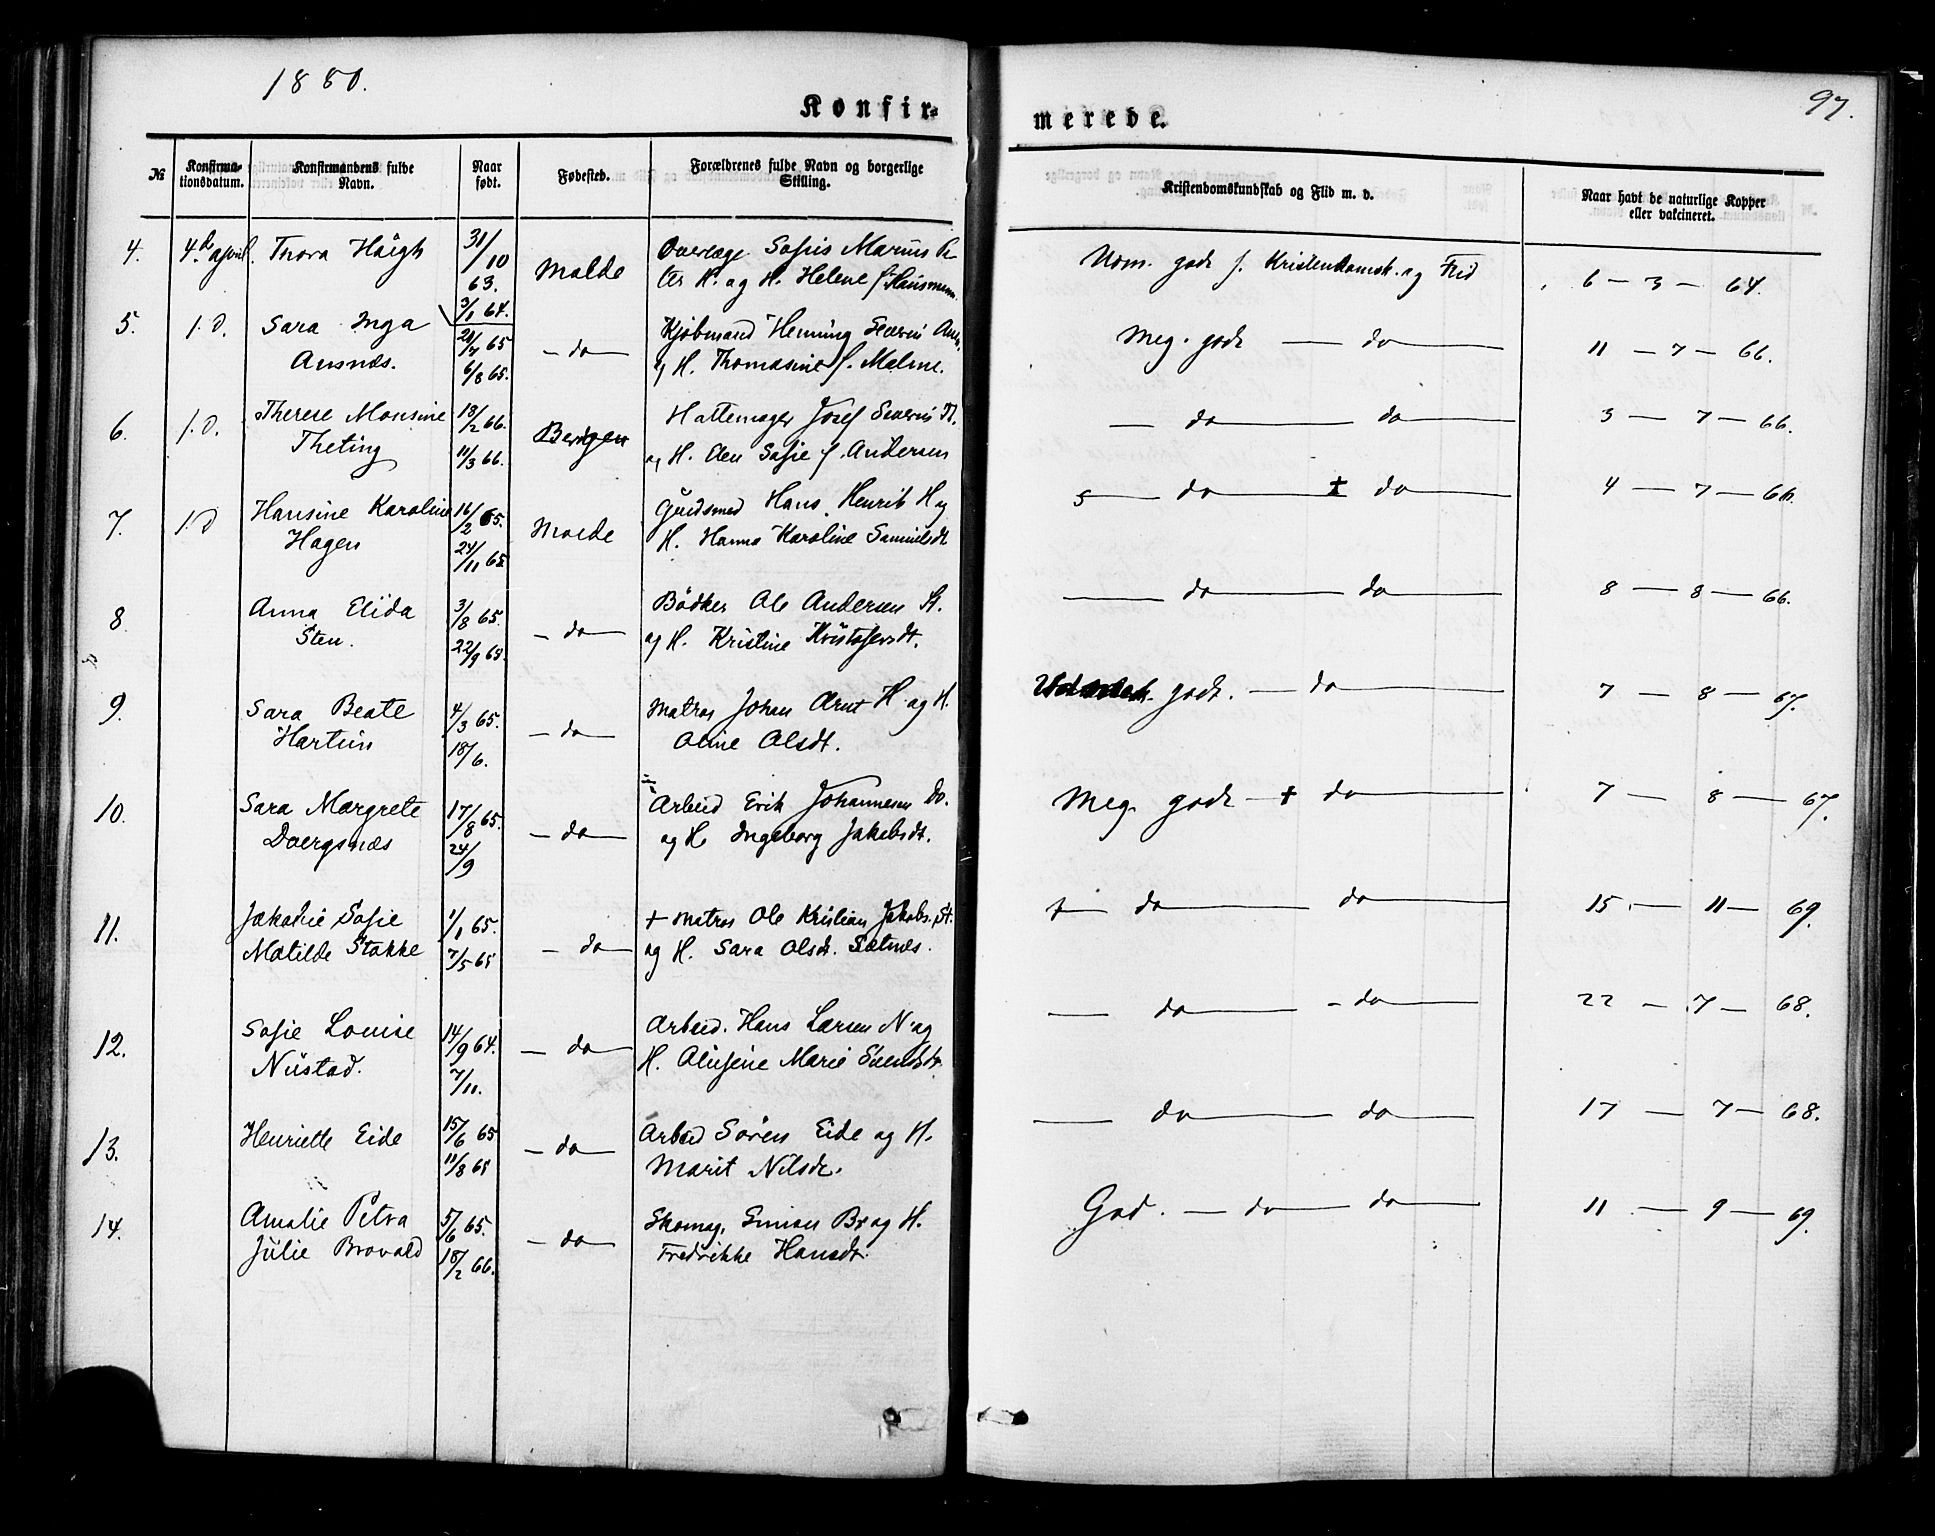 1880.
97.
Konfir=
merede.
№
Konfirma-
tionsdatum.
Konfirmandens fulde
Navn.
Naar
født.
Fødested.
Forældrenes fulde Navn og borgerlige
Stilling.
Kristendomskundskab og Flid m. v.
Naar havt de naturlige Kopper
eller vakcineret.
4. 4.d april. Thora Høigh 31/10 63. 3/1 64. Molde
Overlæge Sofus Marius
H. og H. Helene f. Hausmann
godt f. Kristendomsk. og Flid 6 – 3 – 64.
5. 1.D. Sara Inga 21/7 65 – do –
Ausnæs. 6/8 65.
Kjøbmand Henning Severin
og H. Thomasine f. Malme.
Meg. godt — do — 11 – 7 – 66.
6. 1.D. Therese Monsine 18/2 66. Bergen
Theting 11/3 66.
Hattemager Josef Severin Th.
og H. Sofie f. Andersen
— do — do — 3 – 7 – 66.
7. 1.D Hansine Karoline 16/2 65. Molde
Hagen 24/11 65
Guldsmed Hans Henrik H og
H. Hanna Karoline Samuelsdt
— do — do — 4 – 7 – 66.
8. Anna Elida 3/8 65. – do –
Sten. 22/9 65.
Bødker Ole Andersen St.
og H. Kristine Kristofersdt.
— do — do — 8 – 8 – 66.
9. Sara Beate 4/3 65. – do –
18/6.
Matros Johan Arnt H. og H.
Oline Olsdt.
godt. – do — 7 – 8 – 67.
10. Sara Margrete 17/8 65. – do –
Dvergsnæs 24/9
Arbeid Erik Johannesen Dv.
og H Ingeborg Jakobsdt.
Meg. godt – + do — 7 – 8 – 67.
11. Sofie 1/1 65. – do –
Matilde Stokke 7/5 65
+ Matros Ole Kristian Jakobs. St.
og H. Sara Olsdt. Sætnes.
do — do — 15 – 11 – 69.
12. Sofie Louise 14/9 64. – do –
Nustad. 7/11.
Arbeid. Hans Larsen N. og
H. Marie
— do — do — 22 – 7 – 68.
13. Henriette Eide 15/6 65 – do –
11/8 65
Arbeid Søren Eide og H.
Marit Nilsdt.
— do — do — 17 – 7 – 68.
14. Amalie Petra 5/6 65. – do –
Julie Brovold 18/2 66.
Skomag. Simon Br og H.
Fredrikke Hansdt.
God. – do — do — 11 – 9 – 69.